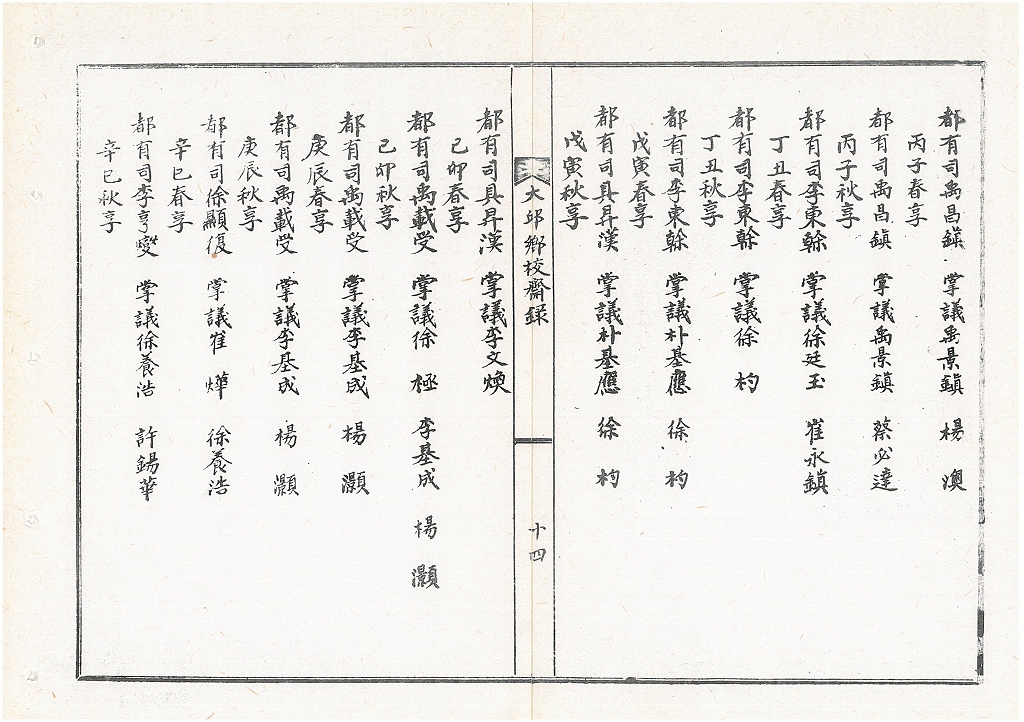 都有司禹昌鎭 掌議禹景鎭 楊澳
丙子春享
都有司禹昌鎭 掌議禹景鎭 蔡必達
丙子秋享
都有司李東榦 掌議徐廷玉 崔永鎭
丁丑春享
都有司李東榦 掌議徐杓
丁丑秋享
都有司李東榦 掌議朴基應 徐杓
戊寅春享
都有司具昇漢 掌議朴基應 徐杓
戊寅秋享
大邱鄉校齋錄
十四
都有司具昇漢 掌議李文煥
己卯春享
都有司禹載受 掌議徐極 李基成 楊灝
己卯秋享
都有司禹載受 掌議李基成 楊灝
庚辰春享
都有司禹載受 掌議李基成 楊灝
庚辰秋享
都有司徐顯復 掌議崔燁 徐養浩
辛巳春享
都有司李亨燮 掌議徐養浩 許錫華
辛巳秋享